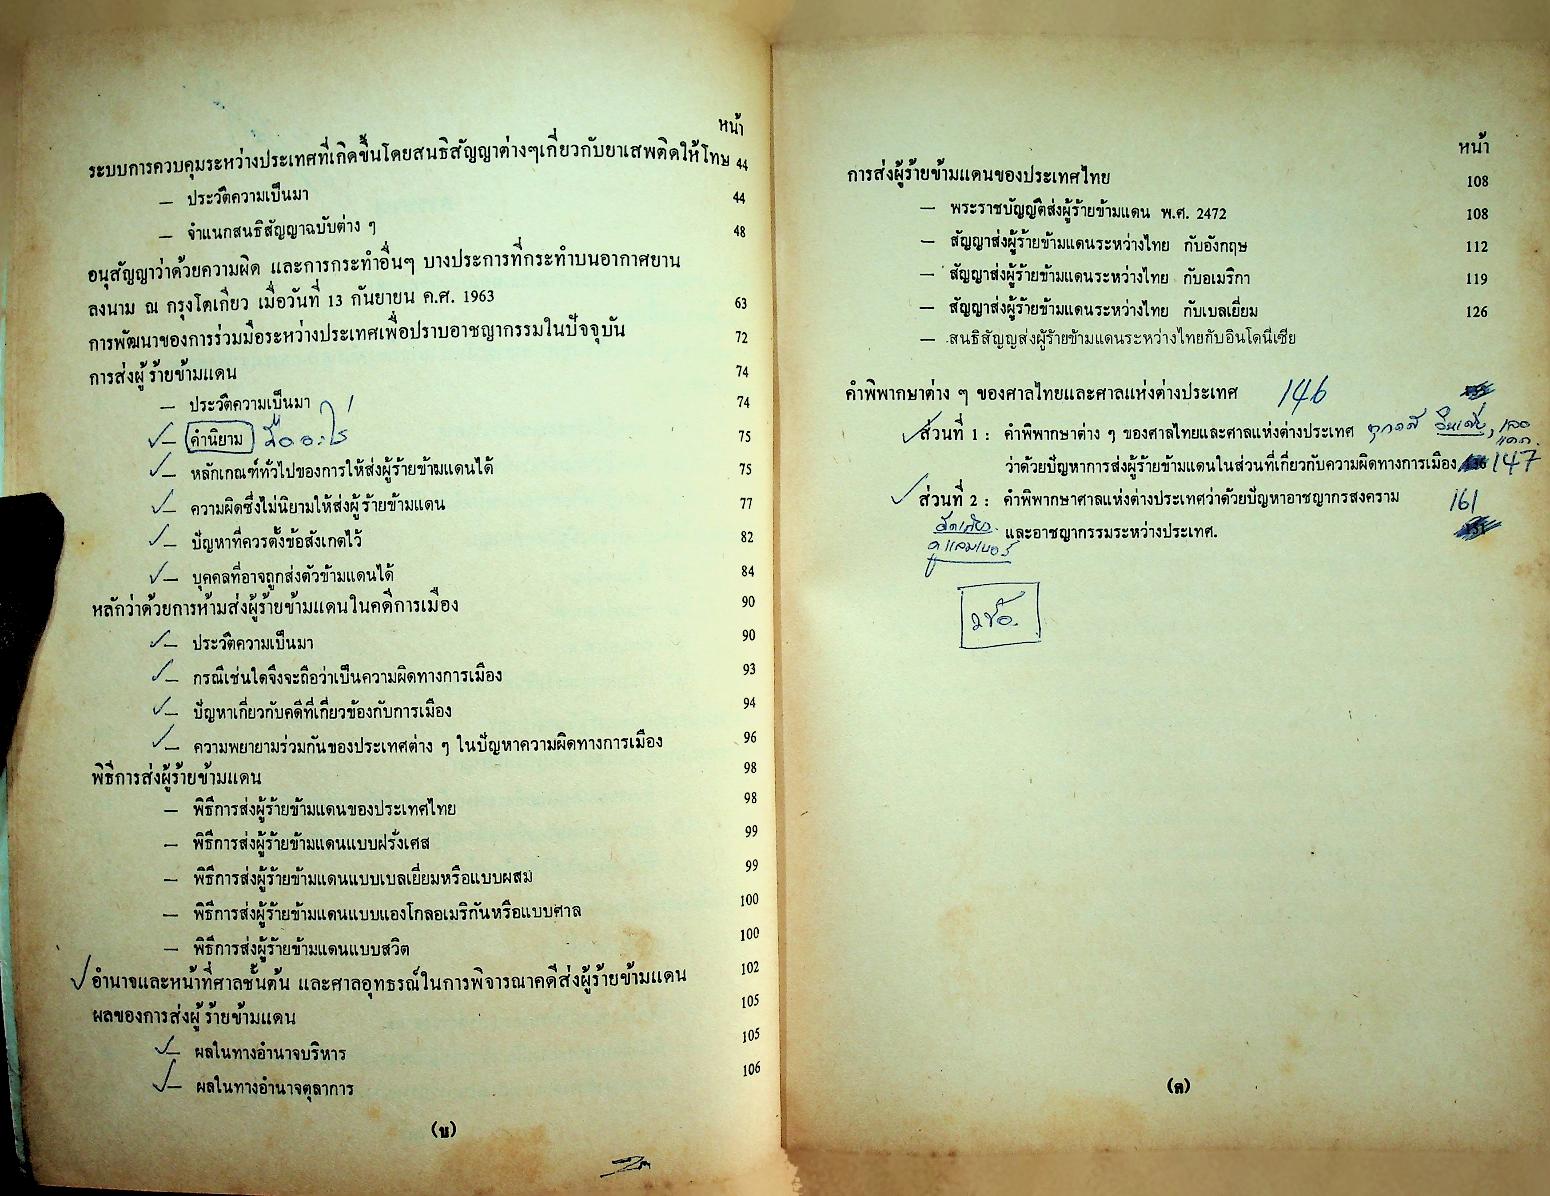 หน้า
ระบบการควบคุมระหว่างประเทศที่เกิดขึ้นโดยสนธิสัญญาต่างๆเกี่ยวกับยาเสพติดให้โทษ 44
— ประวัติความเป็นมา 44
— จำแนกสนธิสัญญาฉบับต่าง ๆ 48
อนุสัญญาว่าด้วยความผิด และการกระทำอื่นๆ บางประการที่กระทำบนอากาศยาน
ลงนาม ณ กรุงโตเกียว เมื่อวันที่ 13 กันยายน ค.ศ. 1963 63
การพัฒนาของการร่วมมือระหว่างประเทศเพื่อปราบอาชญากรรมในปัจจุบัน 72
การส่งผู้ร้ายข้ามแดน 74
— ประวัติความเป็นมา 74
✓— คำนิยาม คืออะไร 75
✓— หลักเกณฑ์ทั่วไปของการให้ส่งผู้ร้ายข้ามแดนได้ 75
✓— ความผิดซึ่งไม่นิยามให้ส่งผู้ร้ายข้ามแดน 77
✓— ปัญหาที่ควรตั้งข้อสังเกตไว้ 82
✓— บุคคลที่อาจถูกส่งตัวข้ามแดนได้ 84
หลักว่าด้วยการห้ามส่งผู้ร้ายข้ามแดนในคดีการเมือง 90
✓— ประวัติความเป็นมา 90
✓— กรณีเช่นใดจึงจะถือว่าเป็นความผิดทางการเมือง 93
✓— ปัญหาเกี่ยวกับคดีที่เกี่ยวข้องกับการเมือง 94
✓— ความพยายามร่วมกันของประเทศต่าง ๆ ในปัญหาความผิดทางการเมือง 96
พิธีการส่งผู้ร้ายข้ามแดน 98
— พิธีการส่งผู้ร้ายข้ามแดนของประเทศไทย 98
— พิธีการส่งผู้ร้ายข้ามแดนแบบฝรั่งเศส 99
— พิธีการส่งผู้ร้ายข้ามแดนแบบเบลเยี่ยมหรือแบบผสม 99
— พิธีการส่งผู้ร้ายข้ามแดนแบบแองโกลอเมริกันหรือแบบศาล 100
— พิธีการส่งผู้ร้ายข้ามแดนแบบสวิต 100
✓อำนาจและหน้าที่ศาลชั้นต้น และศาลอุทธรณ์ในการพิจารณาคดีส่งผู้ร้ายข้ามแดน 102
ผลของการส่งผู้ร้ายข้ามแดน 105
✓— ผลในทางอำนาจบริหาร 105
✓— ผลในทางอำนาจตุลาการ 106
(บ)
หน้า
การส่งผู้ร้ายข้ามแดนของประเทศไทย 108
— พระราชบัญญัติส่งผู้ร้ายข้ามแดน พ.ศ. 2472 108
— สัญญาส่งผู้ร้ายข้ามแดนระหว่างไทย กับอังกฤษ 112
— สัญญาส่งผู้ร้ายข้ามแดนระหว่างไทย กับอเมริกา 119
— สัญญาส่งผู้ร้ายข้ามแดนระหว่างไทย กับเบลเยี่ยม 126
— สนธิสัญญส่งผู้ร้ายข้ามแดนระหว่างไทยกับอินโดนี่เซีย
คำพิพากษาต่าง ๆ ของศาลไทยและศาลแห่งต่างประเทศ 146
✓ส่วนที่ 1 : คำพิพากษาต่าง ๆ ของศาลไทยและศาลแห่งต่างประเทศ
ว่าด้วยปัญหาการส่งผู้ร้ายข้ามแดนในส่วนที่เกี่ยวกับความผิดทางการเมือง 147
✓ส่วนที่ 2 : คำพิพากษาศาลแห่งต่างประเทศว่าด้วยปัญหาอาชญากรสงคราม 161
และอาชญากรรมระหว่างประเทศ.
(ค)